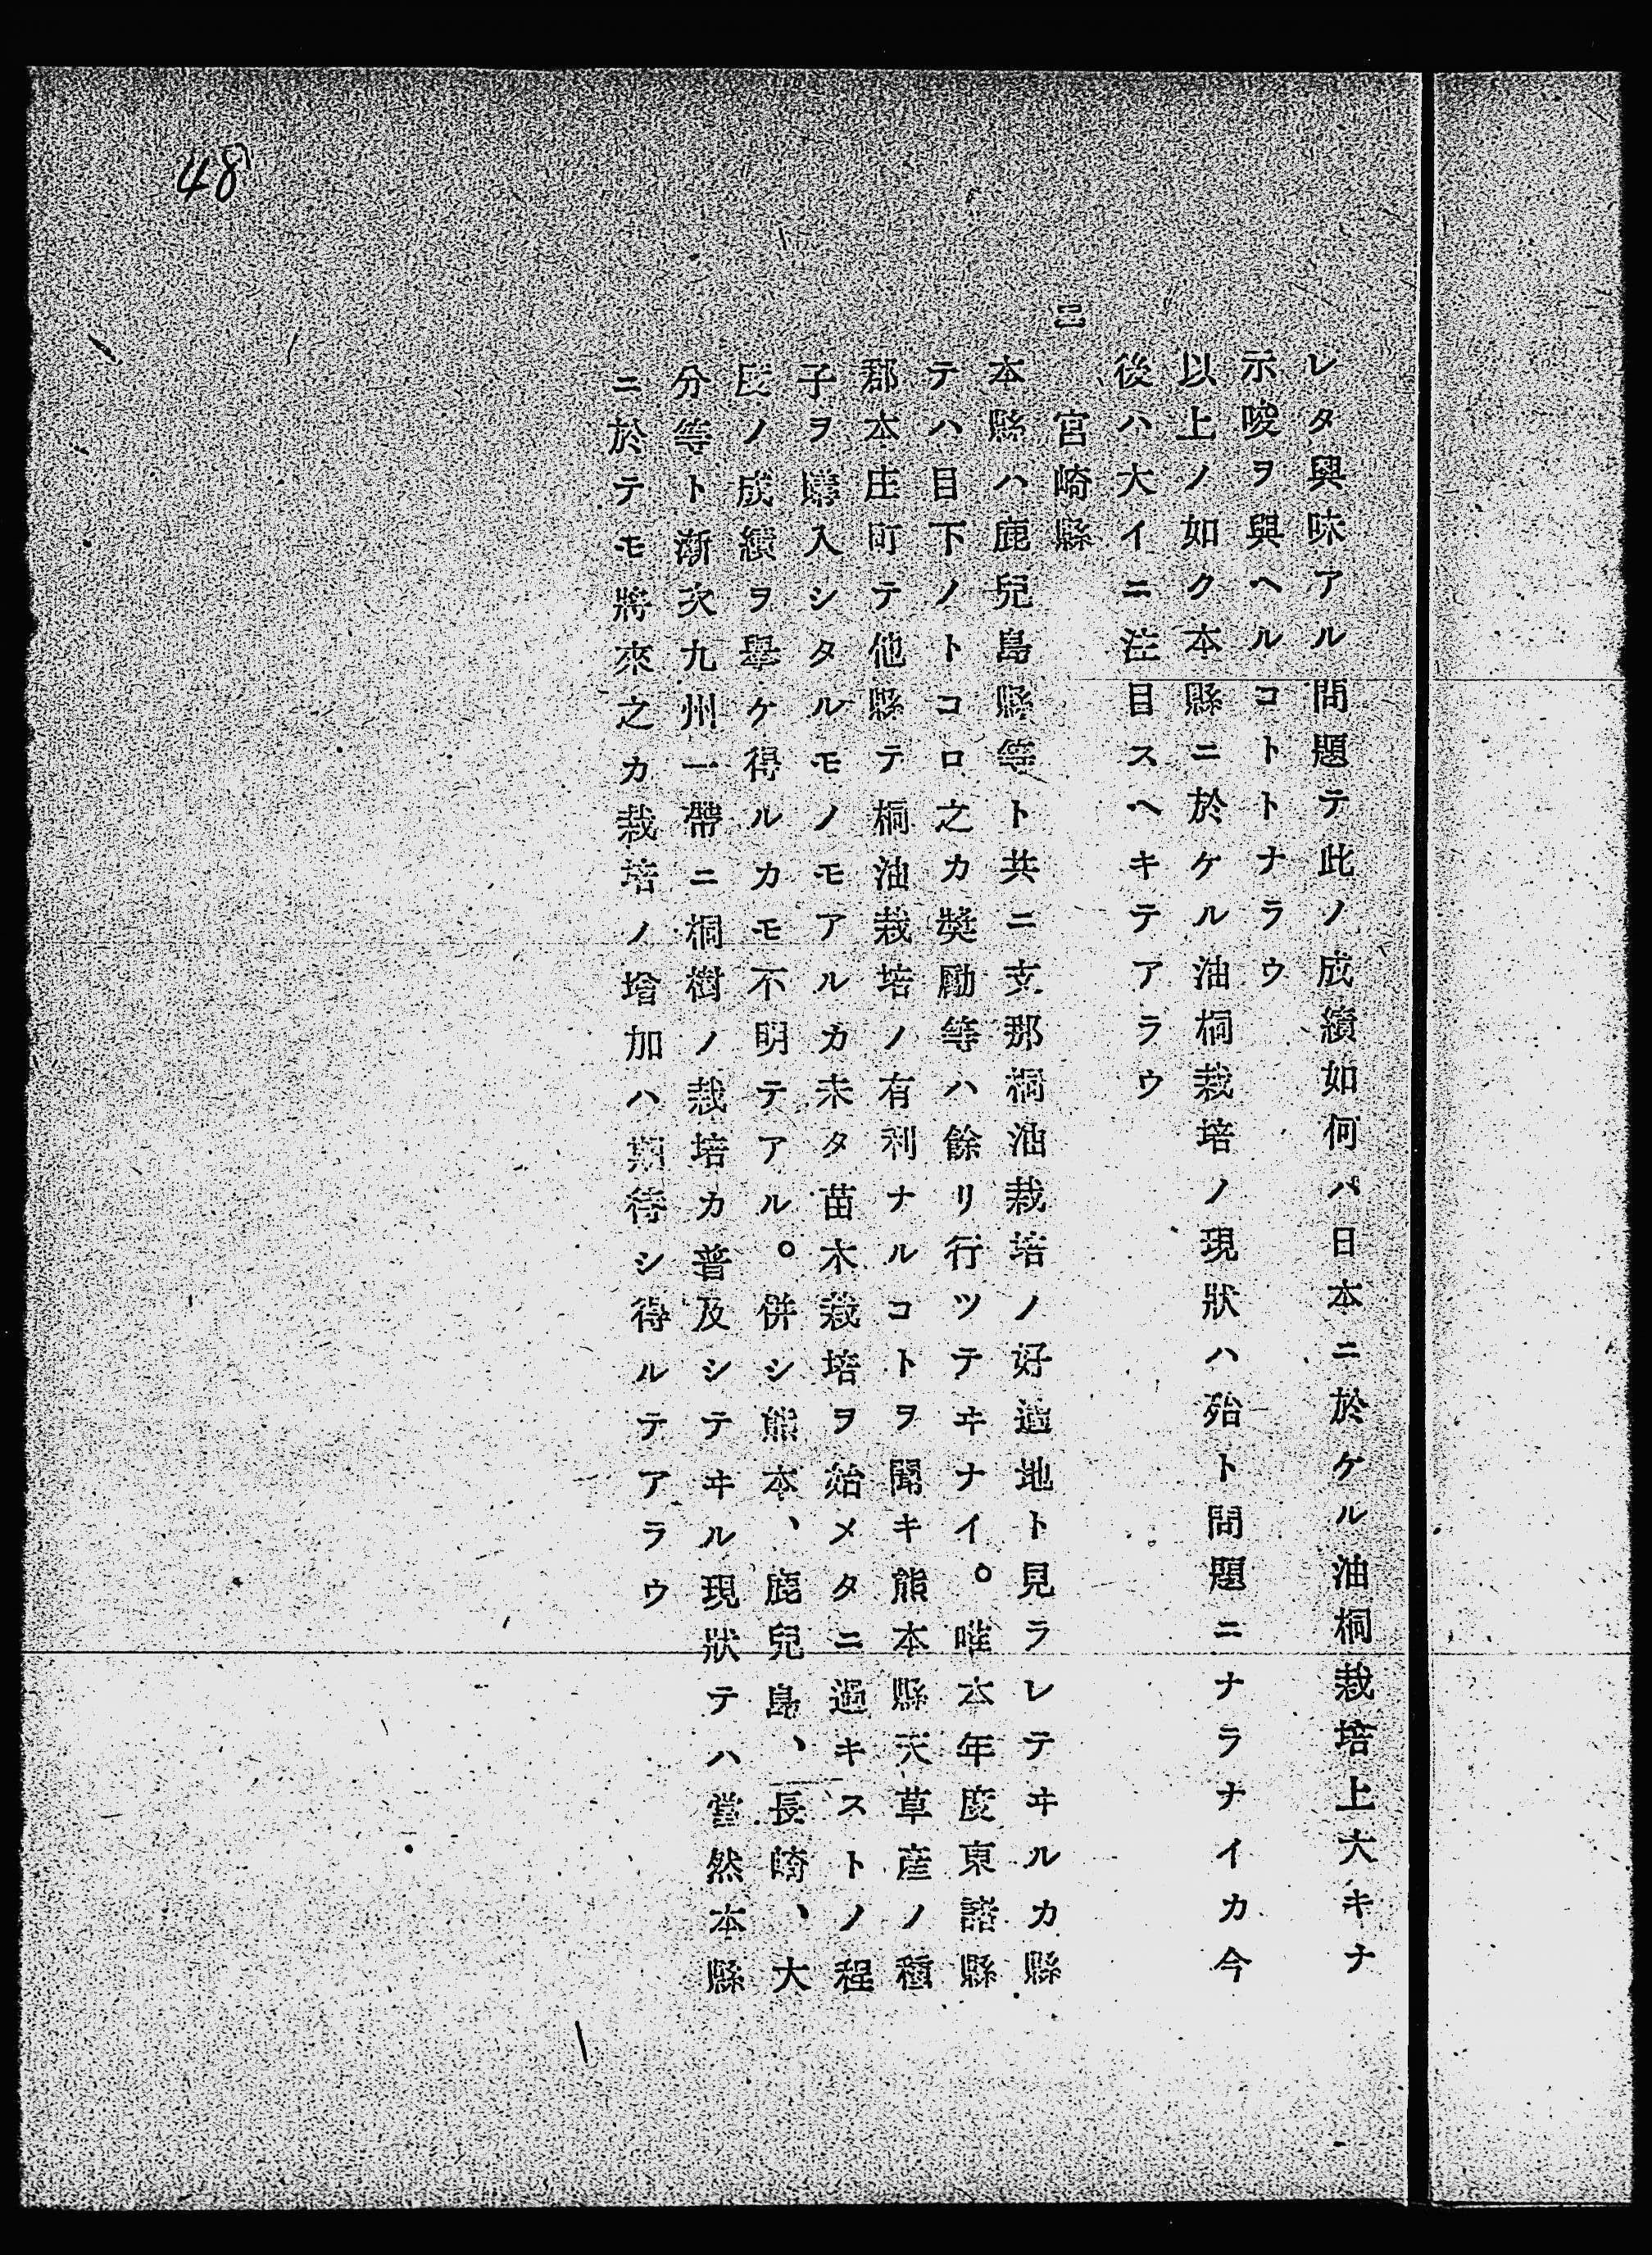 48
レタ興味アル問題テ此ノ成績如何ハ日本ニ於ケル油桐栽培上大キナ
示唆ヲ與ヘルコトトナラウ
以上ノ如ク本縣ニ於ケル油桐栽培ノ現狀ハ殆ト問題ニナラナイカ今
後ハ大イニ注目スヘキテアラウ
宮崎縣
本縣ハ鹿兒島縣等ト共ニ支那桐油栽培ノ好適地ト見ラレテヰルカ縣
テハ目下ノトコロ之カ奬勵等ハ餘リ行ツテヰナイ。唯本年度東諸縣
郡本庄町テ他縣テ桐油栽培ノ有利ナルコトヲ聞キ熊本縣天草産ノ種
子ヲ購入シタルモノモアルカ未タ苗木栽培ヲ始メタニ過キストノ程
ノ成績ヲ擧ケ得ルカモ不明テアル。併シ熊本、鹿兒島、長崎、大
分等ト漸次九州一帶ニ桐樹ノ栽培カ普及シテヰル現狀テハ當然本縣
ニ於テモ將來之カ栽培ノ增加ハ期待シ得ルテアラウ